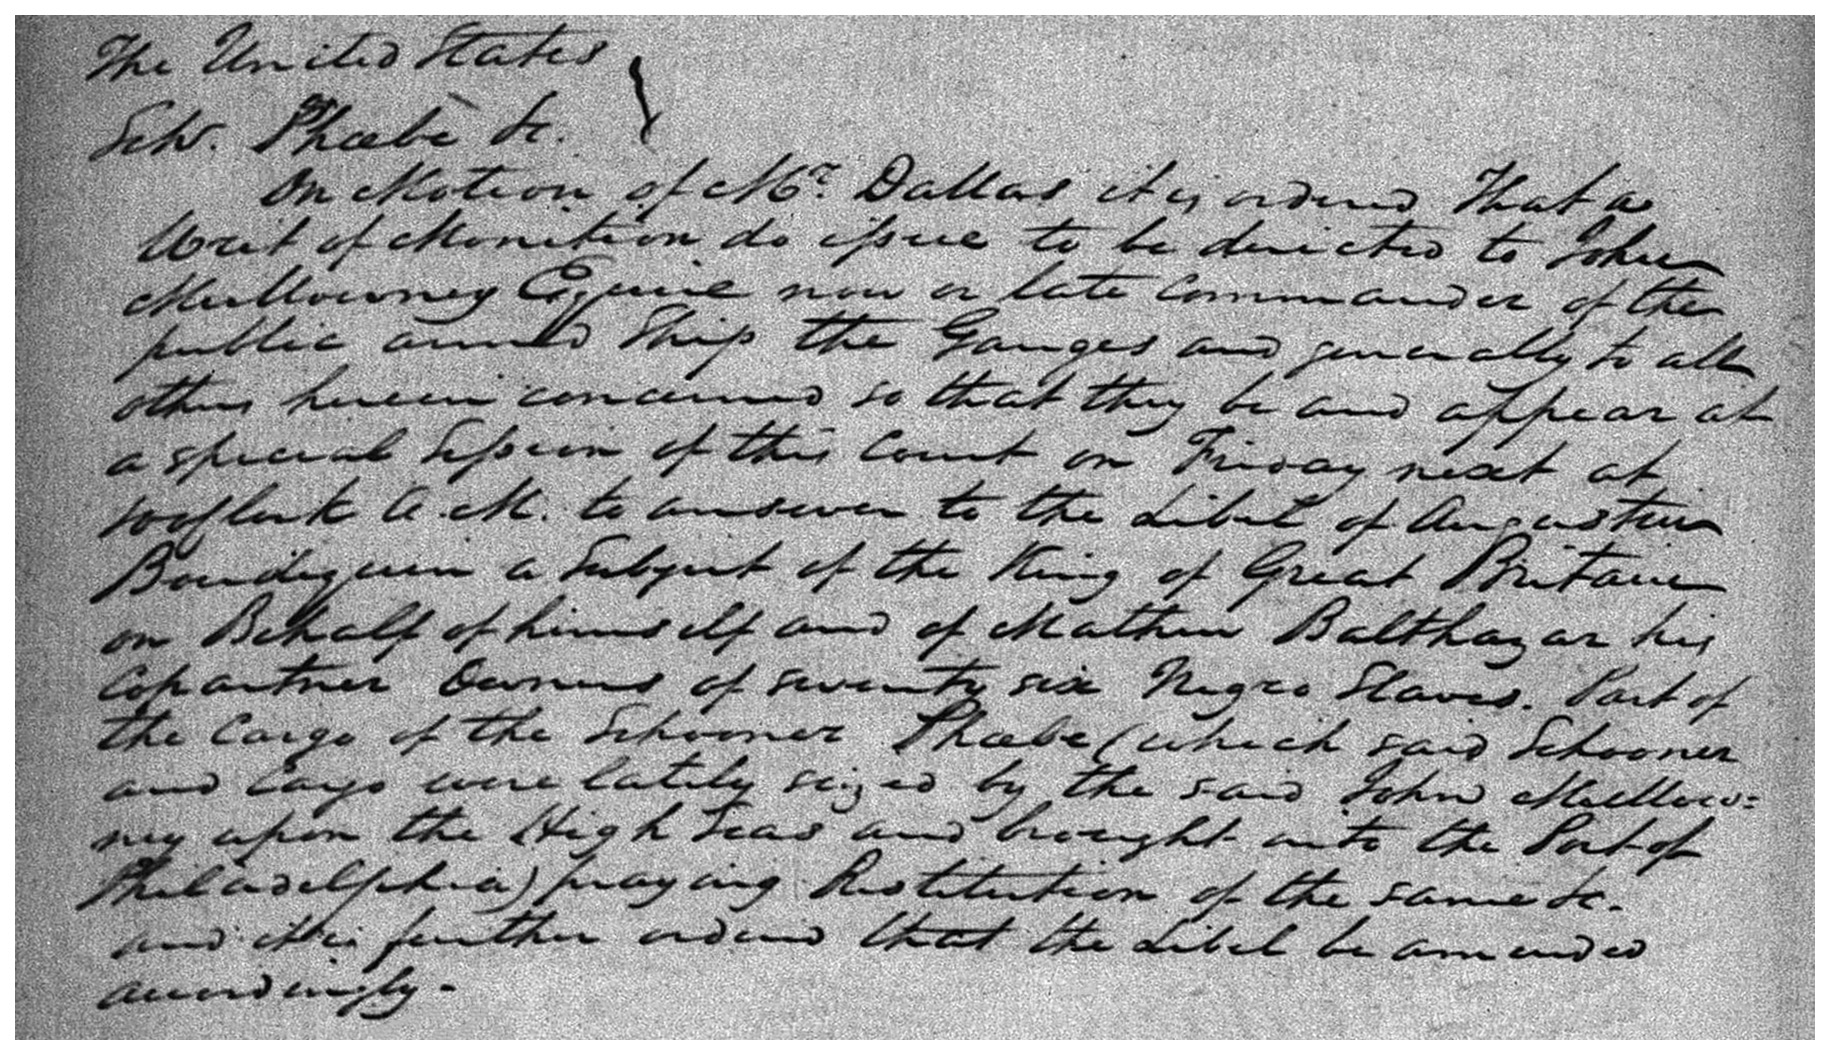 The United States
Schr. Phœbe &c.
On Motion of Mr. Dallas it is ordered That a
Writ of Monition do issue to be directed to John
Mullowney Esquire now or late Commander of the
public armed Ship the Ganges and generally to all
others herein concerned so that they be and appear at
a special Session of this Court on Friday next at
10 oClock A.M. to answer to the Libel of Augustin
Boudiguin a Subject of the King of Great Britain
on Behalf of himself and of Mathew Balthazar his
Copartner Owners of seventy six Negro Slaves. Part of
the Cargo of the Schooner Phœbe (which said Schooner
and Cargo were lately seized by the said John Mullow=
ney upon the High Seas and brought into the Port of
Philadelphia) praying Restitution of the same &c.
and it is further ordered that the Libel be amended
accordingly -